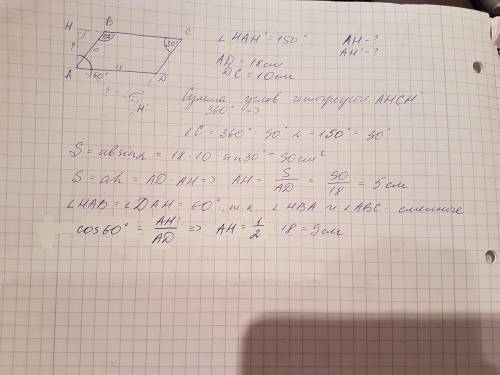 H B C
30°
? 10
A 60° 18 D
H'
∠HAH' = 150°
AD = 18 см
DC = 10 см
AH - ?
AH' - ?
Сумма углов четырёхугол. AHCH'
360° =>
∠C = 360° - 90° · 2 - 150° = 30°
S = ab sin α = 18 · 10 · sin 30° = 90 см²
S = ah = AD · AH => AH = S/AD = 90/18 = 5 см
∠HAB = ∠DAH' = 60°, т.к. ∠HBA и ∠ABC - смежные
cos 60° = AH'/AD => AH' = 1/2 · 18 = 9 см